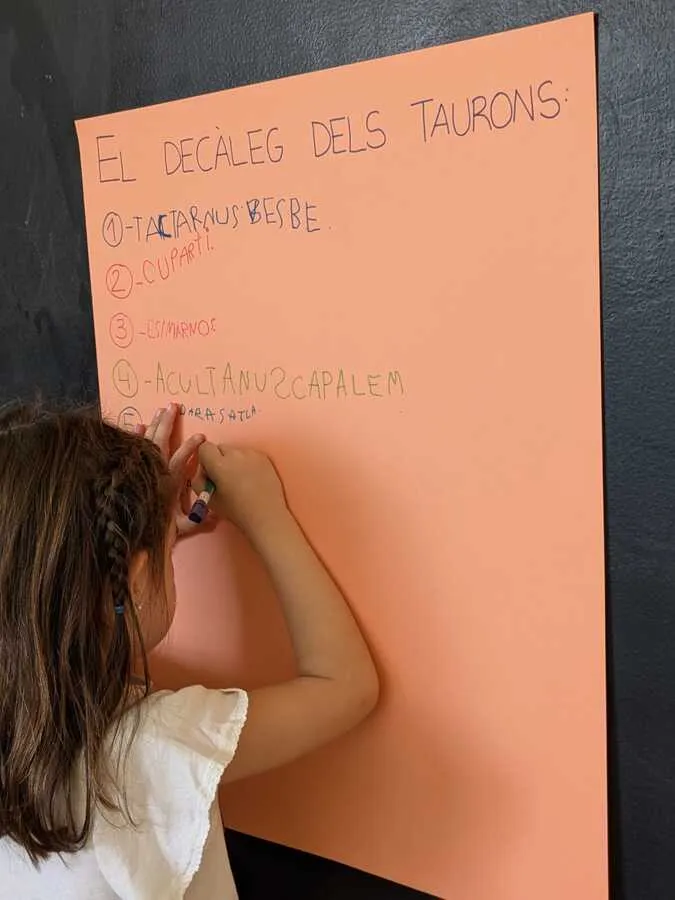 EL DECÀLEG DELS TAURONS:
1-TACTARNUS BESBE.
2-CUPARTI.
3-ESIMARNOS
4-ACULTANUSCAPALEM
5 PARASATLA